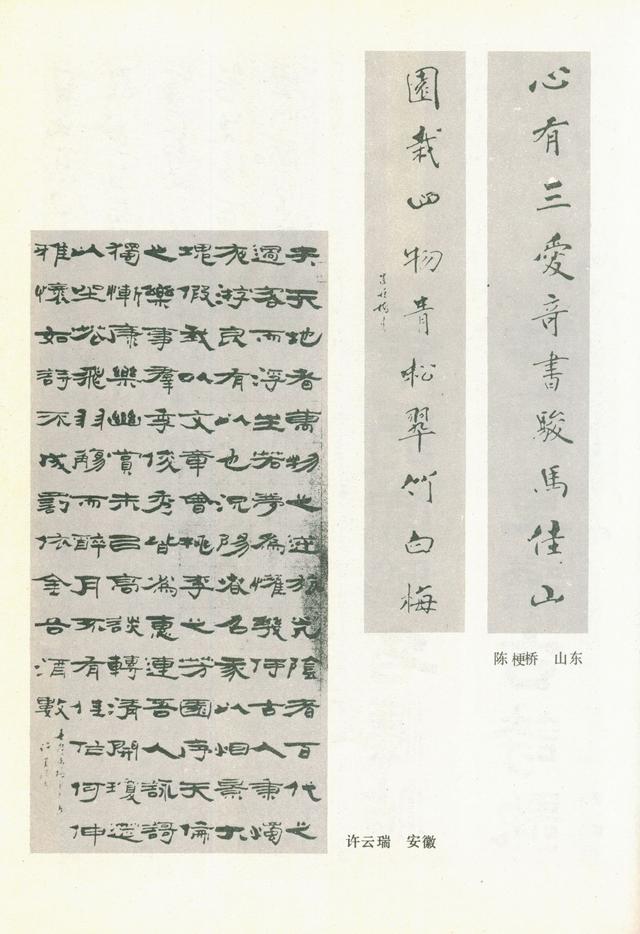 心有三愛奇書駿馬佳山
園栽四物青松翠竹白梅
陈梗桥 山东
夫天地者萬物之逆旅光陰者百代之
過客而浮生若夢為懽幾何古人秉燭
夜游良有以也況陽春召我以烟景大
塊假我以文章會桃李之芳園序天倫
之樂事羣季俊秀皆為惠連吾人詠謌
獨慚康樂幽賞未已高談轉清開瓊筵
以坐花飛羽觴而醉月不有佳作何伸
雅懷如詩不成罰依金谷酒數
许云瑞 安徽